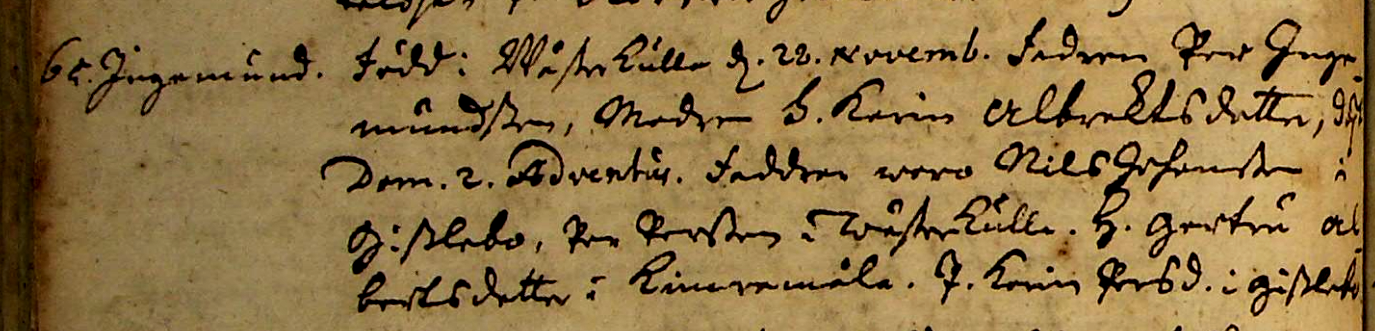 65. Ingemund. Född i Wästerkulla d. 22. Novemb. Fadren Per Inge
mundsson, Modren h. Karin Albrektsdotter, döpt
Dom. 2. Adventus. Faddrar woro Nils Johansson i
Gisslebo, Per Persson i Wästerkulla. H. Gertru Al
bertsdotter i Kinnemåla. P. Karin Persd. i Gisslebo